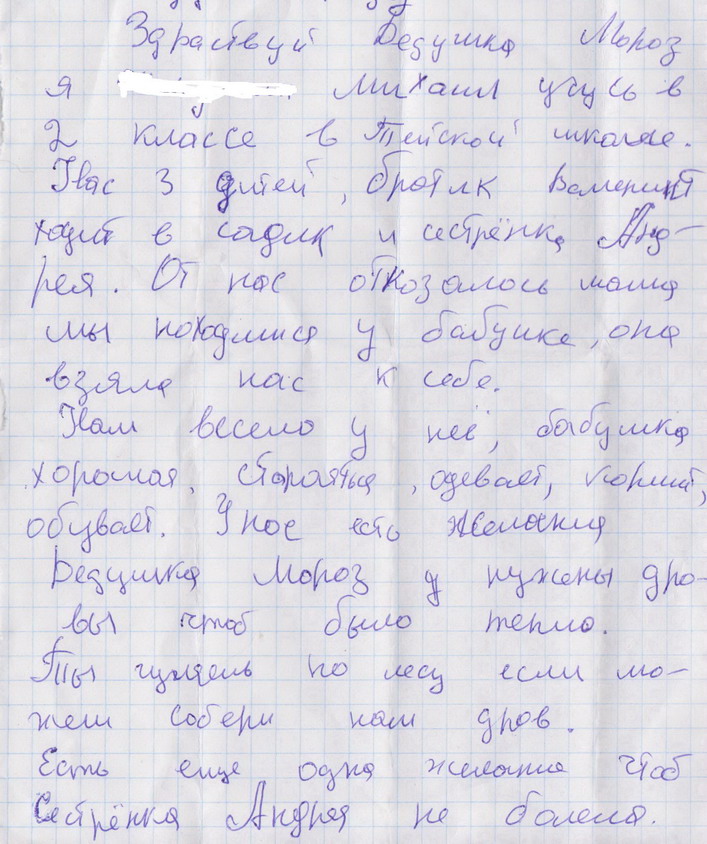 Здраствуй Дедушка Мороз
я Михаил учусь в
2 классе в Тейской школе.
Унас 3 дитей, братик Валеринт
ходит в садик и сестрёнка Анд-
рея. От нас откозалось мама
мы находимся у бабушке, она
взяла нас к себе.
Нам весело у неё, бабушка
хорошая, старается, одевает, кормит,
обувает. У нос есть желания
Дедушка Мороз у нужены дро-
вы чтоб было тепло.
Ты гуляешь по лесу если мо-
жеш собери нам дров.
Есть еще одна желание чтоб
Сестрёнка Андрея не болела.